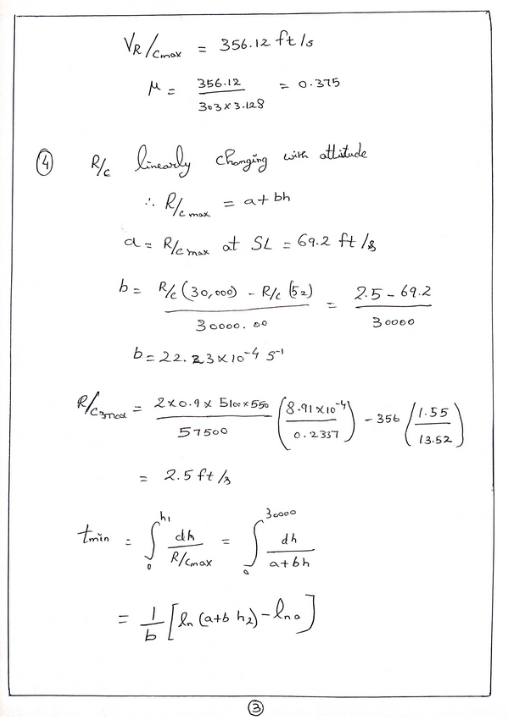 VR/Cmax = 356.12 ft/s
μ = 356.12 / 303 × 3.128 = 0.375
④ R/c linearly changing with attitude
∴ R/c max = a + bh
a = R/c max at SL = 69.2 ft/s
b = R/c (30,000) - R/c (SL) / 30000.00 = 2.5 - 69.2 / 30000
b = 22.23 × 10⁻⁴ s⁻¹
= 2×0.9× 5100×550 / 57500 (8.91×10⁻⁴ / 0.2337) - 356 (1.55 / 13.52)
= 2.5 ft/s
tmin = ∫₀^h1 dh / R/Cmax = ∫₀^30000 dh / a+bh
= 1/b [ln (a+b h2) - ln a]
③